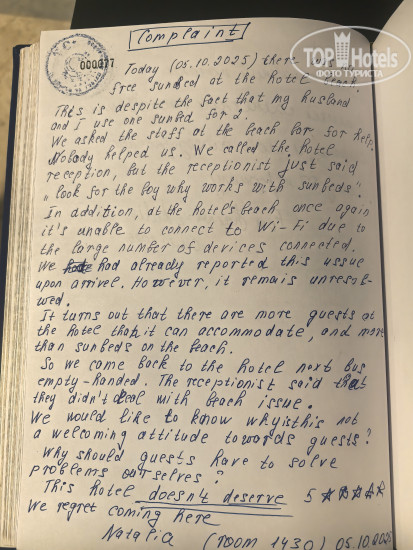 Complaint
TOPHotels
ФОТО ТУРИСТА
000077
Today (05.10.2025) there
free sunbed at the hotel
This is despite the fact that my husband
and I use one sunbed for 2.
We asked the staff at the beach bar for help.
Nobody helped us. We called the hotel
reception, but the receptionist just said
"look for the boy why works with sunbeds".
In addition, at the hotel's beach once again
it's unable to connect to Wi-Fi due to
the large number of devices connected.
We had already reported this issue
upon arrivel. However, it remains unresol-
ved.
It turns out that there are more guests at
the hotel that it can accommodate, and more
than sunbeds on the beach.
So we came back to the hotel next bus
empty-handed. The receptionist said that
they didn't deal with beach issue.
We would like to know why is this not
a welcoming attitude towards guests?
Why should guests have to solve
problems ourselves?
This hotel doesn't deserve 5
We regret coming here
Natalia (room 1430) 05.10.2025